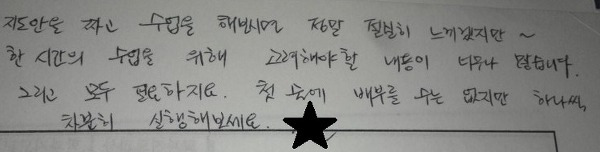 지도안을 짜고 수업을 해보시면 정말 절실히 느끼겠지만 ~
한 시간의 수업을 위해 고려해야할 내용이 너무나 많습니다.
그리고 모두 필요하지요. 첫 술에 배부를 수는 없지만 하나씩,
차분히 실행해보세요.